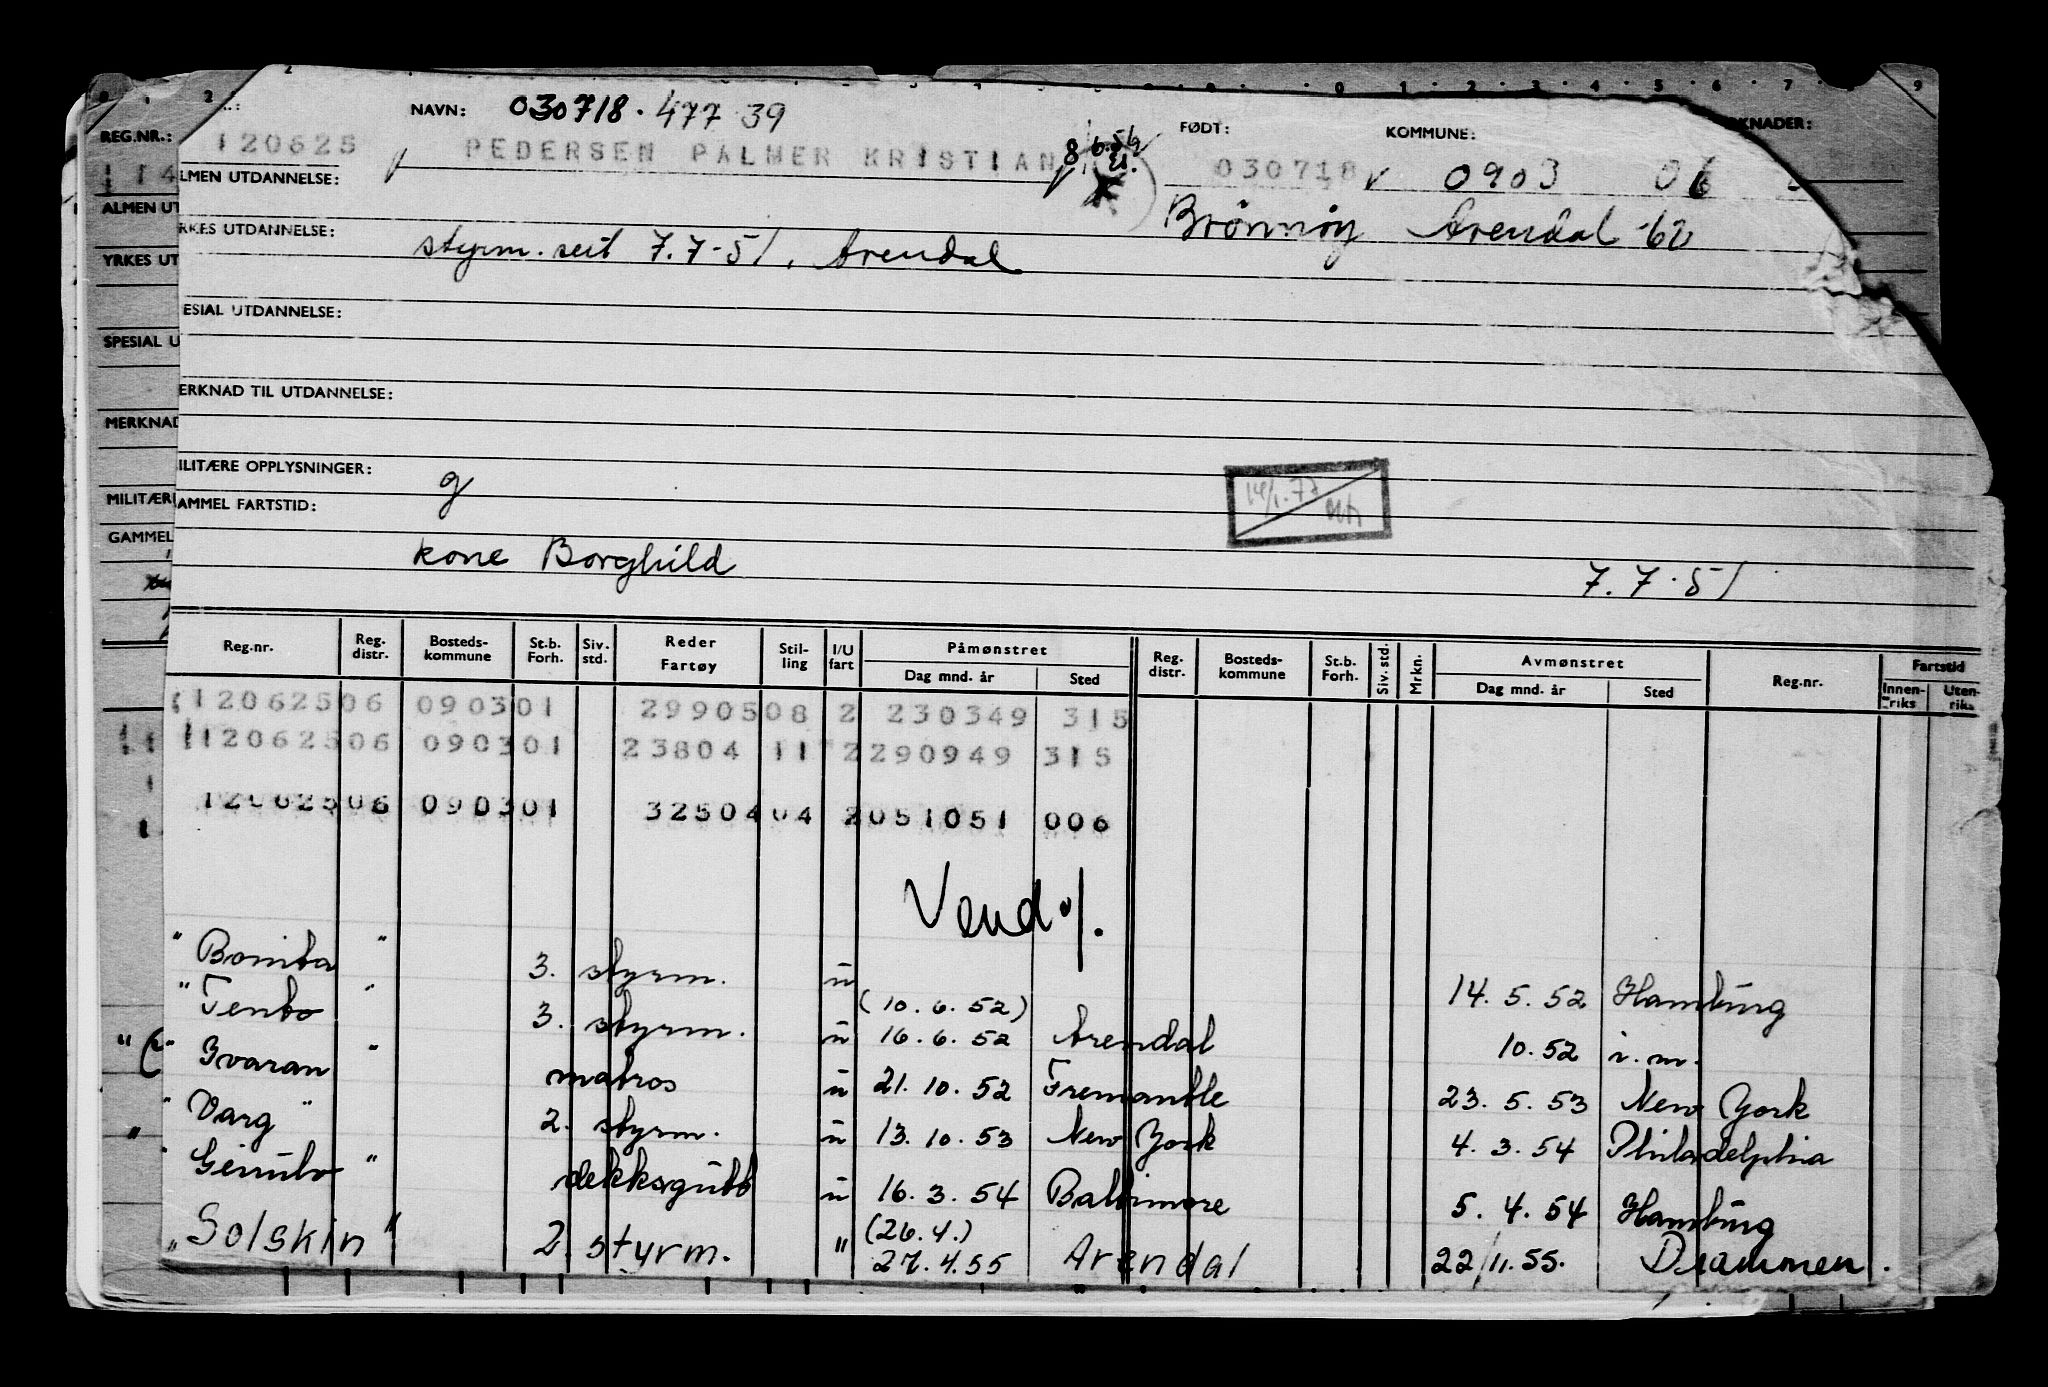 NAVN: 030718. 477 39
FØDT:
KOMMUNE:
REG.NR.:
120625 PEDERSEN PALMER KRISTIAN 030718 0903
114
LMEN UTDANNELSE:
ALMEN UT
Brönnöy Arendal -62
RKES UTDANNELSE:
styrm. sert 7.7-51, Arendal
YRKES UT
ESIAL UTDANNELSE:
SPESIAL U
ERKNAD TIL UTDANNELSE:
MERKNAD
ILITÆRE OPPLYSNINGER: g
MILITÆRE
14/1.77
AMMEL FARTSTID:
GAMMEL
kone Borghild 7.7.51
Reg.nr. Reg. distr. Bosteds- kommune St.b. Forh. Siv. std. Reder Fartøy Stil- ling I/U fart Påmønstret Dag mnd. år Sted Reg. distr. Bosteds- kommune St.b. Forh. Siv. std. Mrkn. Avmønstret Dag mnd. år Sted Reg.nr. Fartstid Innen- riks Uten- riks
12062506 090301 2990508 2 230349 315
12062506 090301 23804 11 2290949 315
12062506 090301 3250404 2051051 006
Vend ./.
" Bonita " 3. styrm. u 14. 5. 52 Hamburg
(10. 6. 52)
" Tento " 3. styrm. u 16. 6. 52 Arendal 10. 52 i. m.
" Ivaran " matros u 21. 10. 52 Fremantle 23. 5. 53 New York
" Varg " 2. styrm. u 13. 10. 53 New York 4. 3. 54 Philadelphia
" Gimbo " dekksgutt u 16. 3. 54 Baltimore 5. 4. 54 Hamburg
(26. 4.)
"Solskin" 2. styrm. " 27. 4. 55 Arendal 22/11. 55. Drammen.